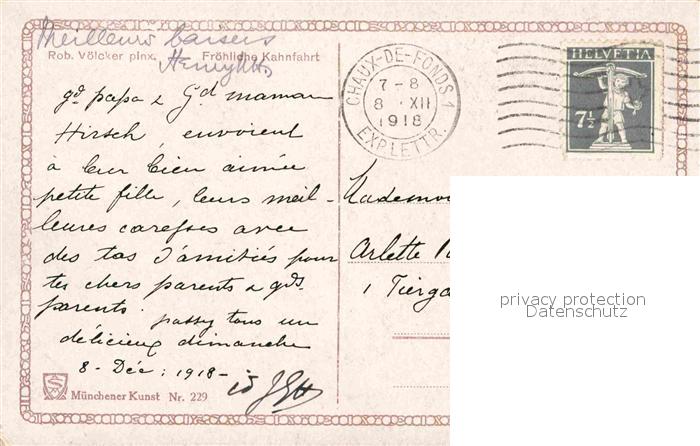 Meilleurs baisers
Rob. Völcker pinx. Fröhliche Kahnfahrt
gd papa & Gd maman
Hirsch, envoient
à leur bien aimée
petite fille, leurs meil-
leures caresses avec
des tas d'amitiés pour
tes chers parents & gds.
parents. passez tous un
délicieux dimanche
8 - Déc: 1918 -
Münchener Kunst Nr. 229
CHAUX-DE-FONDS 1
7-8
8 XII
1918
EXP. LETTR.
HELVETIA
7½
Arlette
1 Tierga
privacy protection
Datenschutz